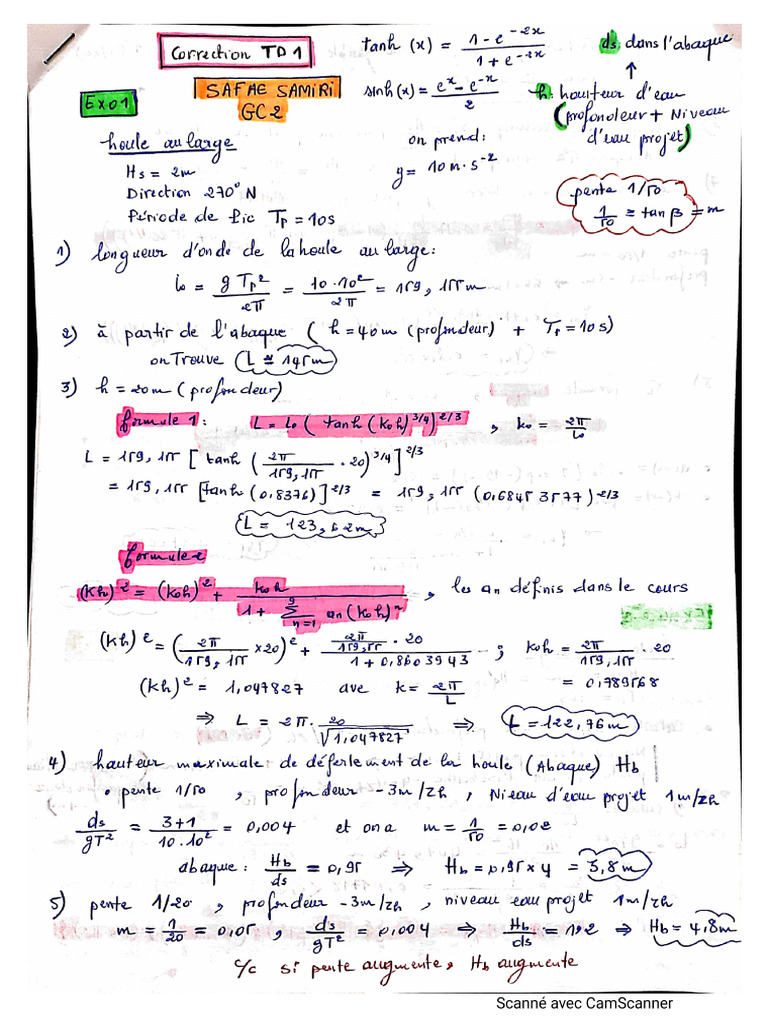 Correction TD1
tanh (x) = 1 - e^-2x / 1 + e^-2x
ds dans l'abaque
SAFAE SAMIRI
GC2
sinh(x) = e^x - e^-x / 2
h: hauteur d'eau
(profondeur + Niveau
d'eau projet)
Ex01
houle au large
on prend:
g = 10 m.s^-2
Hs = 2m
Direction 270° N
Période de Pic Tp = 10s
pente 1/50
1/50 = tan β = m
1) longueur d'onde de la houle au large:
L0 = g Tp^2 / 2π = 10.10^2 / 2π = 159,155 m
2) à partir de l'abaque ( h = 40m (profondeur) + Tp = 10s)
on Trouve L ≅ 145m
3) h = 20m (profondeur)
formule 1: L = L0 ( tanh (k0h)^3/4 )^2/3 , k0 = 2π / L0
L = 159,155 [ tanh ( 2π / 159,155 . 20 )^3/4 ]^2/3
= 159,155 [tanh (0,8376)]^2/3 = 159,155 (0,68453577)^2/3
L = 123,62m
formule 2
(kh)^2 = (k0h)^2 + k0h / 1 + 9 Σ n=1 an (k0h)^n , les an définis dans le cours
(kh)^2 = ( 2π / 159,155 x20)^2 + 2π / 159,155 . 20 / 1 + 0,8603943 ; k0h = 2π / 159,155 . 20
(kh)^2 = 1,047827 ave k = 2π / L = 0,789568
⇒ L = 2π . 20 / √1,047827 ⇒ L = 122,76m
4) hauteur maximale de déferlement de la houle (Abaque) Hb
• pente 1/50 , profondeur -3m/zh , Niveau d'eau projet 1m/zh
ds / gT^2 = 3+1 / 10.10^2 = 0,004 et on a m = 1/50 = 0,02
abaque: Hb / ds = 0,95 ⇒ Hb = 0,95 x 4 = 3,8m
5) pente 1/20 , profondeur -3m/zh , niveau eau projet 1m/zh
m = 1/20 = 0,05 , ds / gT^2 = 0,004 ⇒ Hb / ds = 1,2 ⇒ Hb = 4,8m
c/c si pente augmente, Hb augmente
Scanné avec CamScanner